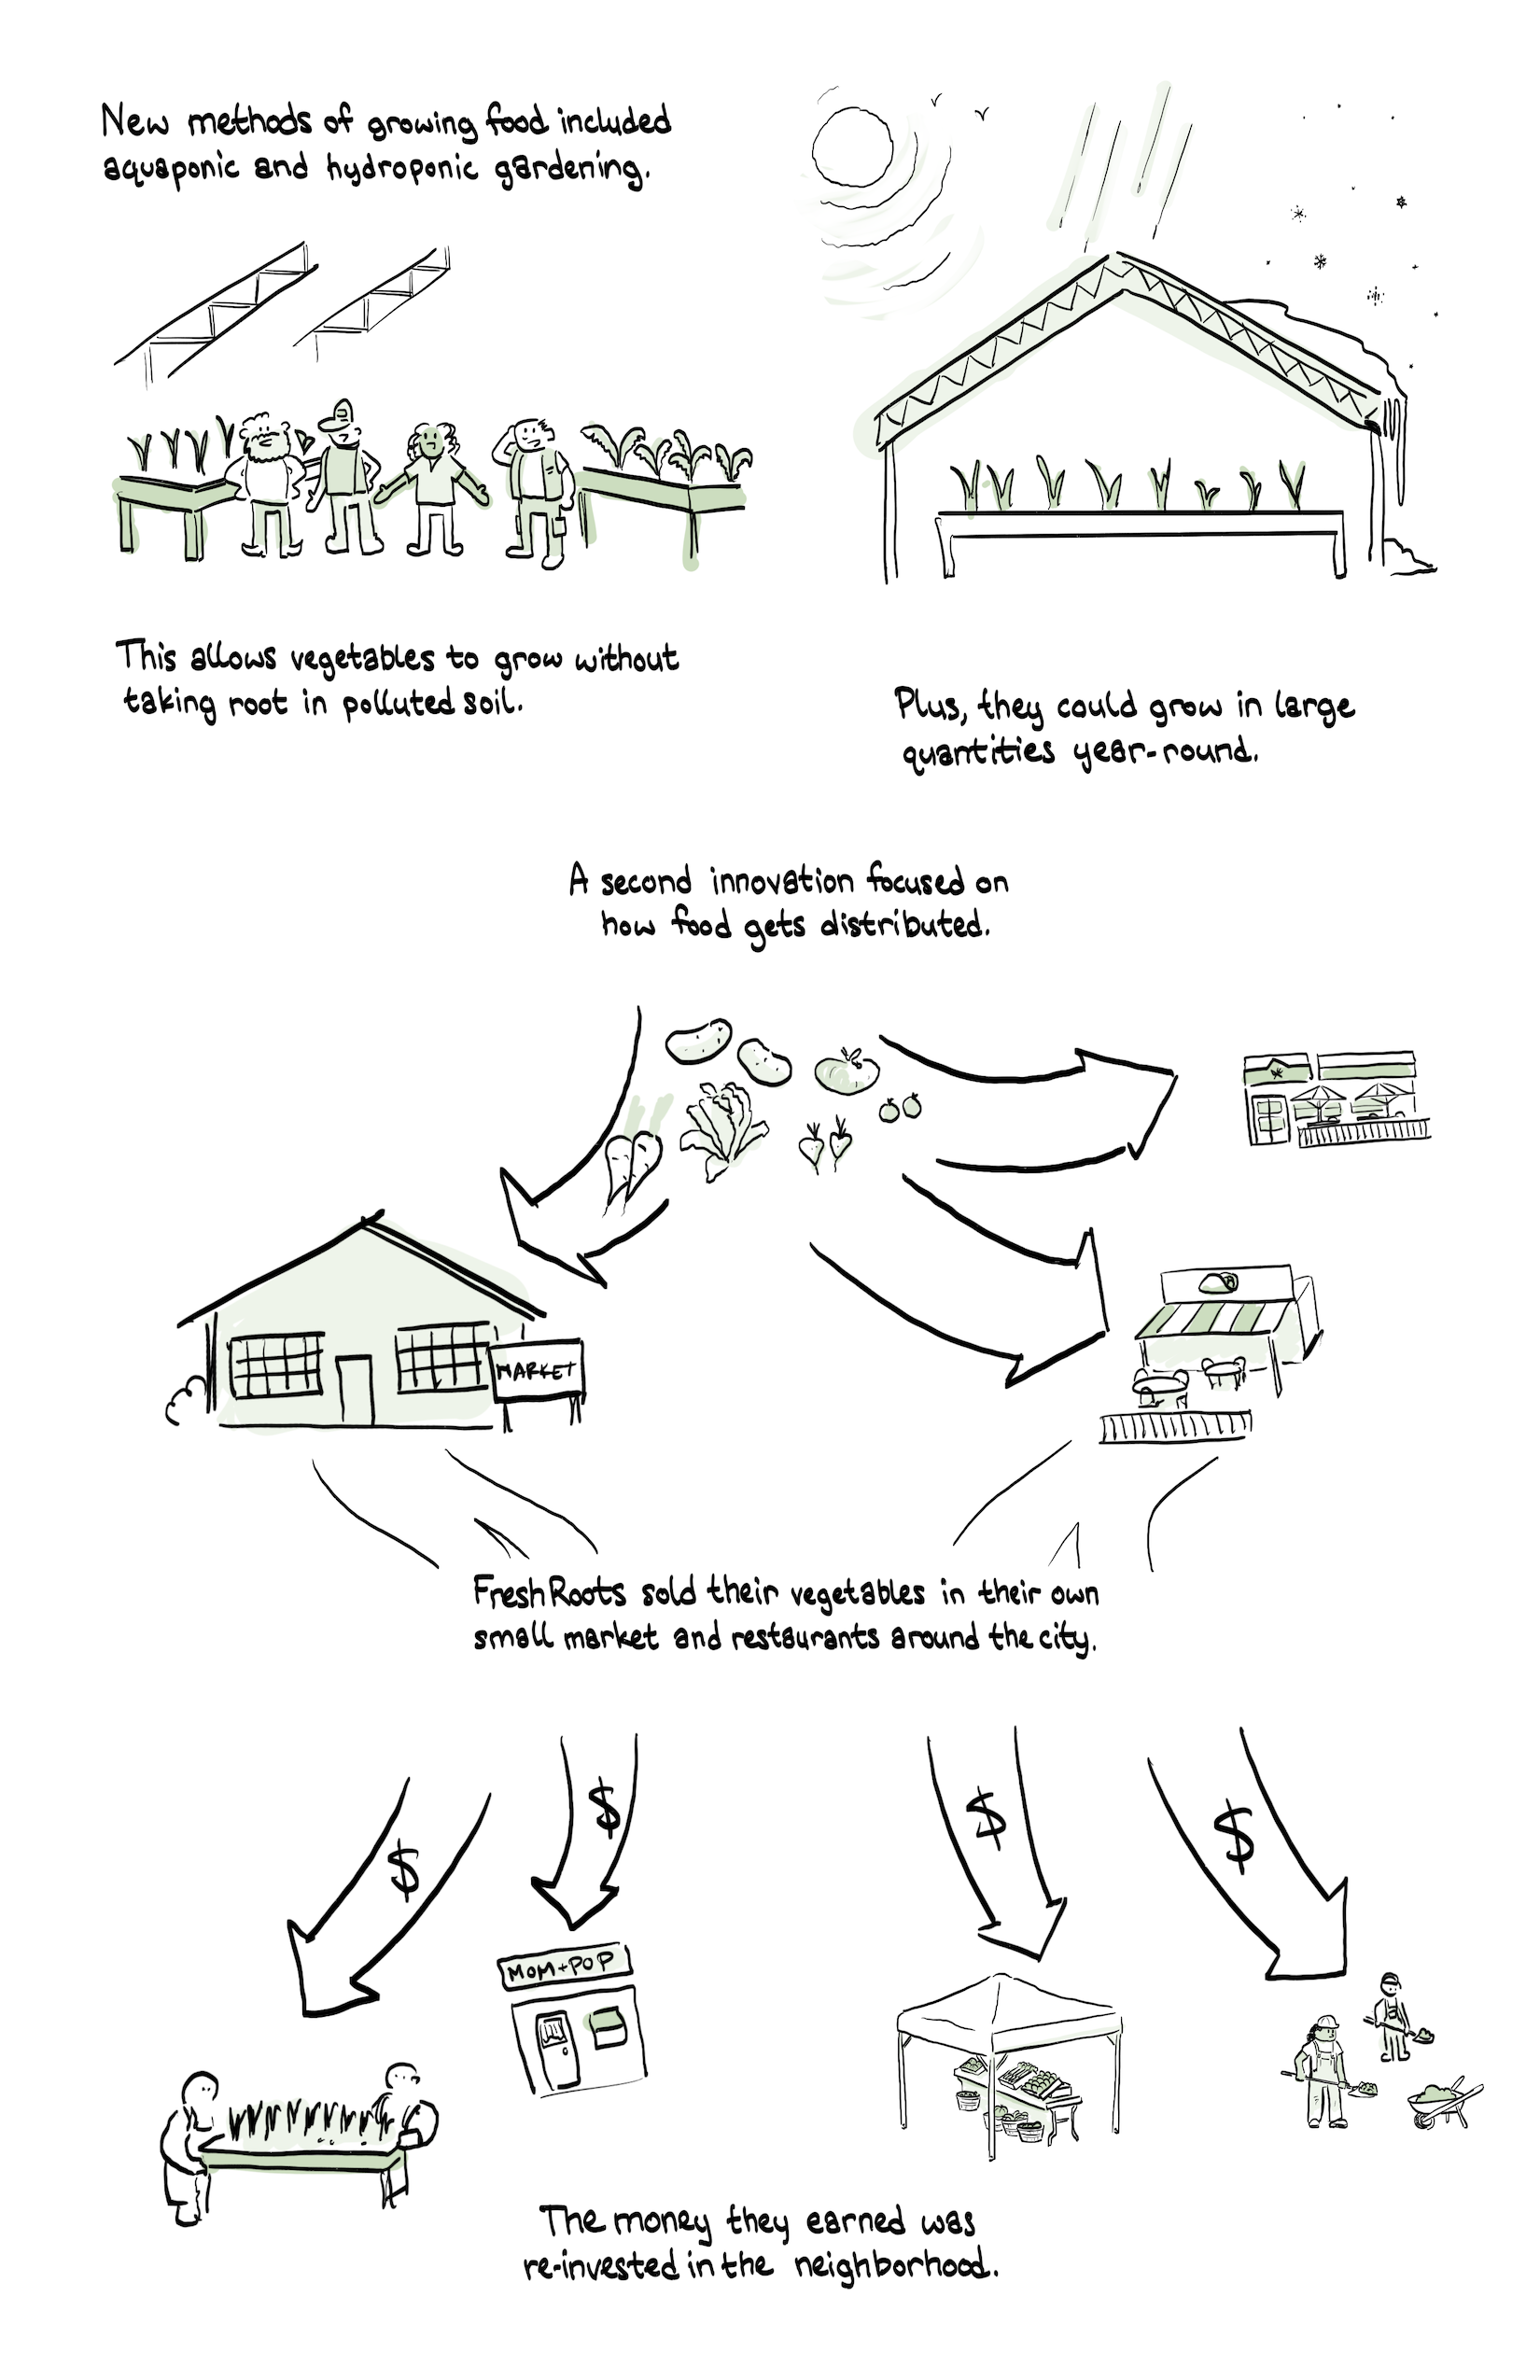 New methods of growing food included
aquaponic and hydroponic gardening.
This allows vegetables to grow without
taking root in polluted soil.
Plus, they could grow in large
quantities year-round.
A second innovation focused on
how food gets distributed.
MARKET
FreshRoots sold their vegetables in their own
small market and restaurants around the city.
$
$
$
$
MOM+POP
The money they earned was
re-invested in the neighborhood.